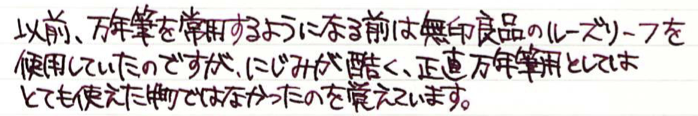 以前、万年筆を常用するようになる前は無印良品のルーズリーフを
使用していたのですが、にじみが酷く、正直万年筆用としては
とても使えた物ではなかったのを覚えています。